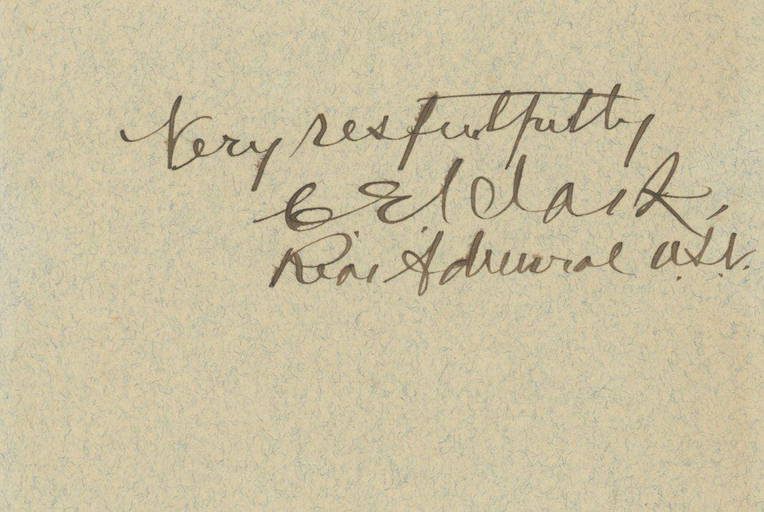 Very respectfully
C E Clark,
Rear Admiral U.S.N.